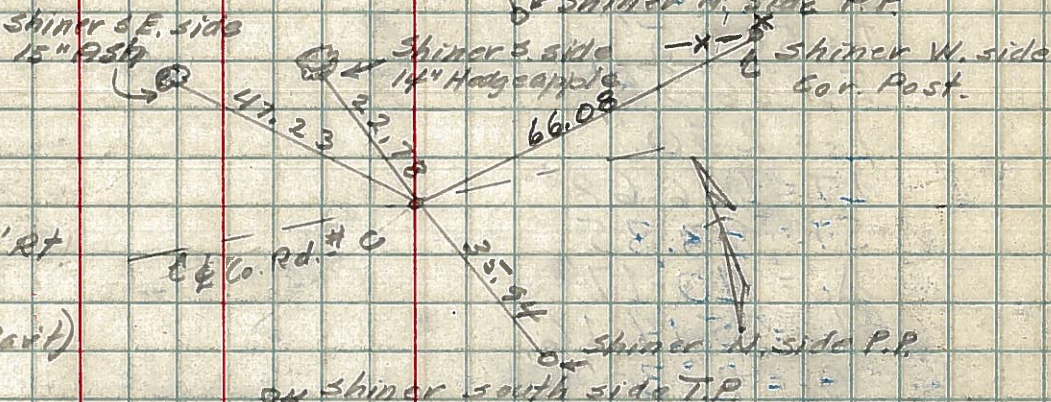 Shiner N. side P.P.
Shiner S.E. side
15" Ash
Shiner S. side
14" Hedgeapple
-x-
Shiner W. side
Cor. Post.
47.23
22.78
66.08
Rt.
Co. Rd. # C
35.94
Shiner N. side P.P.
Shiner south side T.P.